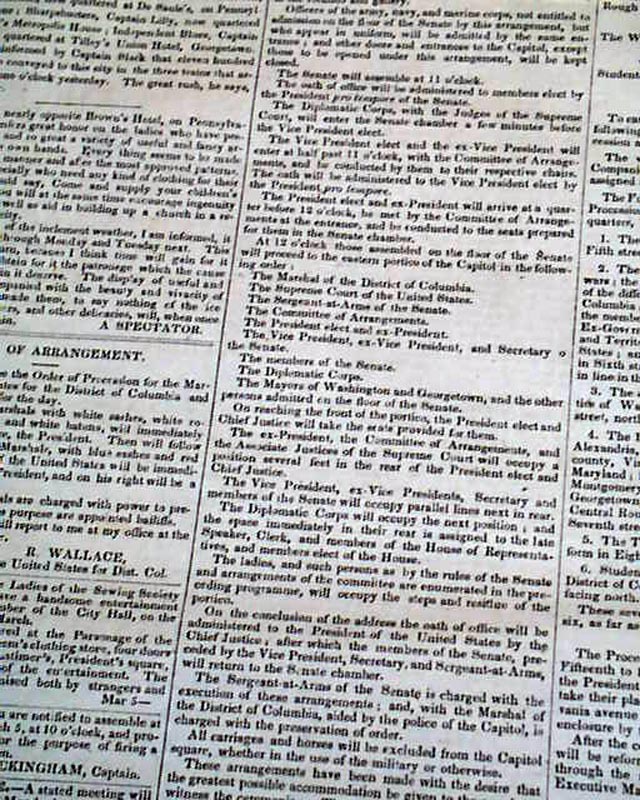 nearly opposite Brown's Hotel, on Pennsylva-
own hands. Every thing seems to be made
manner and after the most approved patterns.
cially who need any kind of clothing for their
uld say, Come and supply your children's
and at the same time encourage ingenuity
well as aid in building up a church in a re-
city.
of the inclement weather, I am informed, is
hrough Monday and Tuesday next. This
ure, because I think time will gain for it
ation for it the patronage which the cause
in it deserves. The display of useful and
mpanied with the beauty and vivacity of
made them, to say nothing of the ice
rs, and other delicacies, will, when once
A SPECTATOR.
OF ARRANGEMENT.
e the Order of Procession for the Mar-
ates for the District of Columbia and
for the day.
arshals with white sashes, white ro-
and white batons, will immediately
e, the President. Then will follow
Marshals, with blue sashes and red
f the United States will be immedi-
resident, and on his right will be a
als are charged with power to pre-
purpose are appointed bailiffs.
ill report to me at my office at the
R. WALLACE,
e United States for Dist. Col.
e Ladies of the Sewing Society
ve a handsome entertainment
ber of the City Hall, on the
March.
red at the Parsonage of the
en's clothing store, four doors
attimer's, President's square,
of the entertainment. The
nised both by strangers and
Mar 5—
are notified to assemble at
ch 5, at 10 o'clock, and pro-
or the purpose of firing a
CKINGHAM, Captain.
S.—A stated meeting will
Officers of the army, navy, and marine corps, not entitled to
admission on the floor of the Senate by this arrangement, but
who appear in uniform, will be admitted by the same en-
trance; and other doors and entrances to the Capitol, except
those to be opened under this arrangement, will be kept
closed.
The Senate will assemble at 11 o'clock.
The oath of office will be administered to members elect by
the President pro tempore of the Senate.
The Diplomatic Corps, with the Judges of the Supreme
Court, will enter the Senate chamber a few minutes before
the Vice President elect.
The Vice President elect and the ex-Vice President will
enter at half past 11 o'clock, with the Committee of Arrange-
ments, and be conducted by them to their respective chairs.
The oath will be administered to the Vice President elect by
the President pro tempore.
The President elect and ex-President will arrive at a quar-
ter before 12 o'clock, be met by the Committee of Arrange-
ments at the entrance, and be conducted to the seats prepared
for them in the Senate chamber.
At 12 o'clock those assembled on the floor of the Senate
will proceed to the eastern portico of the Capitol in the follow-
ing order:
The Marshal of the District of Columbia.
The Supreme Court of the United States.
The Sergeant-at-Arms of the Senate.
The Committee of Arrangements.
The President elect and ex-President.
The Vice President, ex-Vice President, and Secretary o
the Senate.
The members of the Senate.
The Diplomatic Corps.
The Mayors of Washington and Georgetown, and the other
persons admitted on the floor of the Senate.
On reaching the front of the portico, the President elect and
Chief Justice will take the seats provided for them.
The ex-President, the Committee of Arrangements, and
the Associate Justices of the Supreme Court will occupy a
position several feet in the rear of the President elect and
Chief Justice.
The Vice President, ex-Vice Presidents, Secretary and
members of the Senate will occupy parallel lines next in rear.
The Diplomatic Corps will occupy the next position; and
the space immediately in their rear is assigned to the late
Speaker, Clerk, and members of the House of Representa-
tives, and members elect of the House.
The ladies, and such persons as by the rules of the Senate
and arrangements of the committee are enumerated in the pre-
ceding programme, will occupy the steps and residue of the
portico.
On the conclusion of the address the oath of office will be
administered to the President of the United States by the
Chief Justice; after which the members of the Senate, pre-
ceded by the Vice President, Secretary, and Sergeant-at-Arms,
will return to the Senate chamber.
The Sergeant-at-Arms of the Senate is charged with the
execution of these arrangements; and, with the Marshal of
the District of Columbia, aided by the police of the Capitol, is
charged with the preservation of order.
All carriages and horses will be excluded from the Capitol
square, whether in the use of the military or otherwise.
These arrangements have been made with the desire that
the greatest possible accommodation be given to
witness the
Rough
The W
Student
To
following
cession
The
assigned
The F
Procession
quarter,
1. The
Fifth street
2. The
wars; the
of the dif
Columbia
the mem
Ex-Gover
and Territ
States;
in Sixth st
in line in
3. The
ties of W
street, north
4. The
Alexandria,
county, Vi
Maryland
Montgomer
Georgetown
Central Rou
Seventh stre
5. The T
form in Eigh
6. Studen
District of C
facing north.
These
six, as far as
The Proce
Fifteenth to
the President
take their pla
vania avenue
enclosure by
After the
will be refor
through the
Executive M